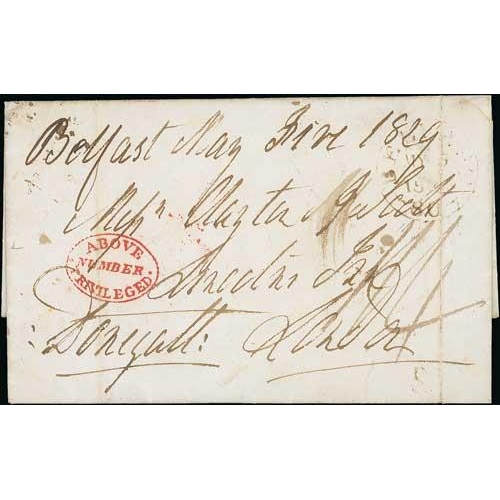 Belfast May Five 1829
Messrs Clayton & Scott
ABOVE
NUMBER
PRIVILEGED
Lincolns Inn
Donegall: London